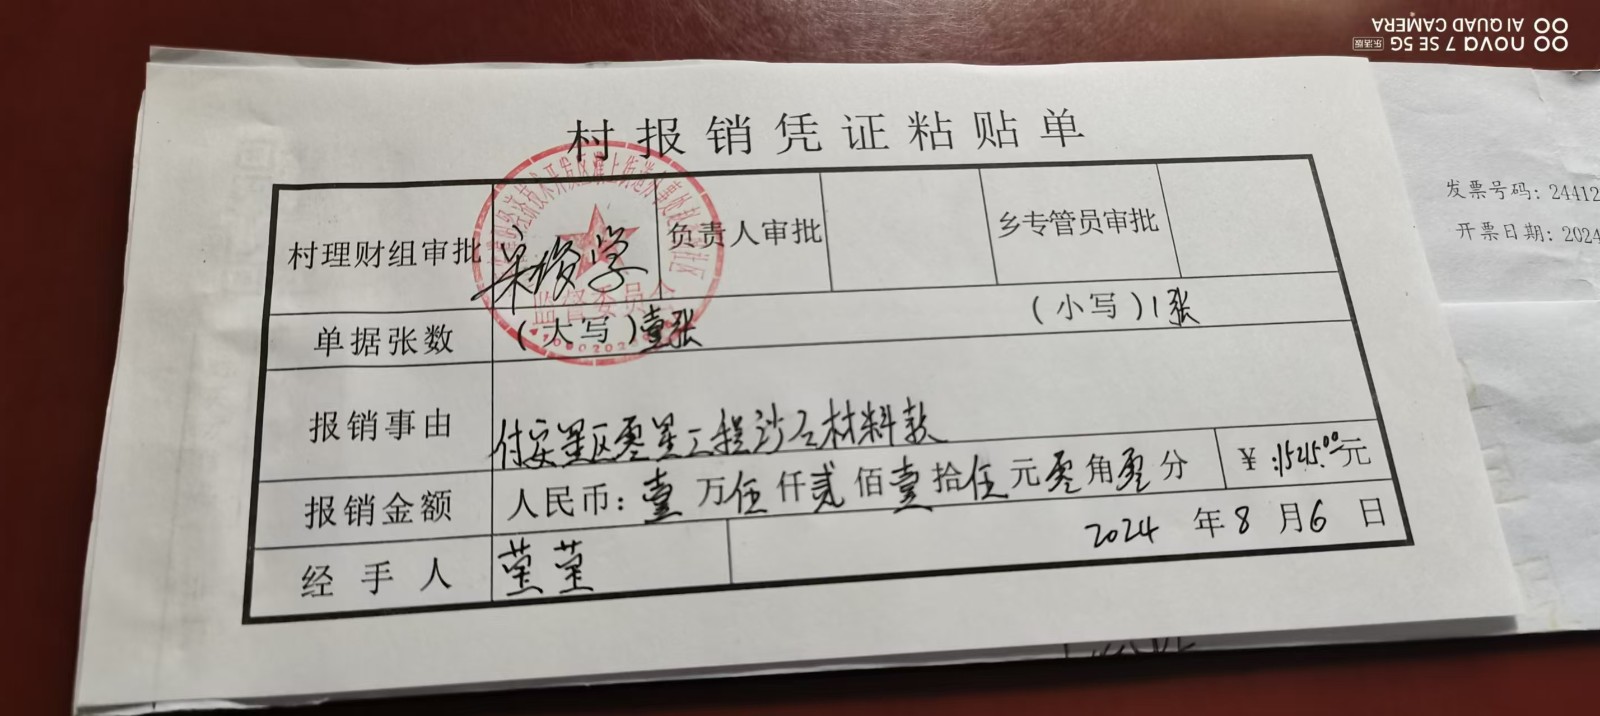 nova 7 SE 5G 乐活版
AI QUAD CAMERA
村报销凭证粘贴单
村理财组审批
负责人审批
乡专管员审批
监督委员会
单据张数 (大写)壹张 (小写)1张
报销事由 付安置区零星工程沙石材料款
报销金额 人民币:壹万伍仟贰佰壹拾伍元零角零分 ¥:15215.00元
经手人 2024年8月6日
发票号码: 24412
开票日期: 2024